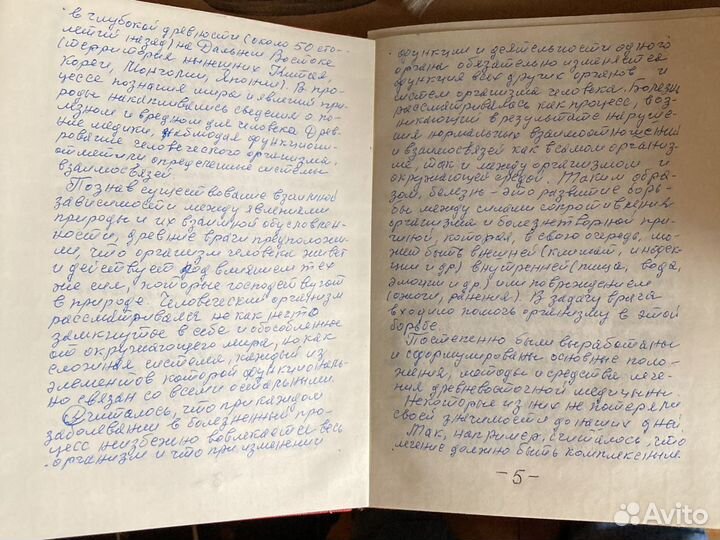 в глубокой древности (около 50 сто-
летий назад) на Дальнем Востоке
(территория нынешних Китая,
Кореи, Монголии, Японии). В про-
цессе познания мира и явлений при-
роды накапливались сведения о по-
лезном и вредном для человека. Древ-
ние медики, наблюдая функциони-
рование человеческого организма,
отметили определенные системы
взаимосвязей.
Познав существование взаимной
зависимости между явлениями
природы и их взаимной обусловлен-
ности, древние врачи предположи-
ли, что организм человека живет
и действует под влиянием тех
же сил, которые господствуют
в природе. Человеческий организм
рассматривался не как нечто
замкнутое в себе и обособленное
от окружающего мира, но как
сложная система, каждый из
элементов которой функциональ-
но связан со всеми остальными.
Считалось, что при каждом
заболевании в болезненный про-
цесс неизбежно вовлекается весь
организм и что при изменении
функции и деятельности одного
органа обязательно изменяется
функция всех других органов и
систем организма человека. Болезнь
рассматривалась как процесс, воз-
никающий в результате наруше-
ния нормальных взаимоотношений
и взаимосвязей как в самом организ-
ме, так и между организмом и
окружающей средой. Таким обра-
зом, болезнь - это развитие борь-
бы между силами сопротивления
организма и болезнетворной при-
чиной, которая, в свою очередь, мо-
жет быть внешней (климат, инфек-
ции и др) внутренней (пища, вода,
эмоции и др) или повреждением
(ожоги, ранения). В задачу врача
входило помочь организму в этой
борьбе.
Постепенно были выработаны
и сформулированы основные поло-
жения, методы и средства лече-
ния древневосточной медицины
Некоторые из них не потеряли
своей значимости до наших дней.
Так, например, считалось, что
лечение должно быть комплексным
-5-
Avito